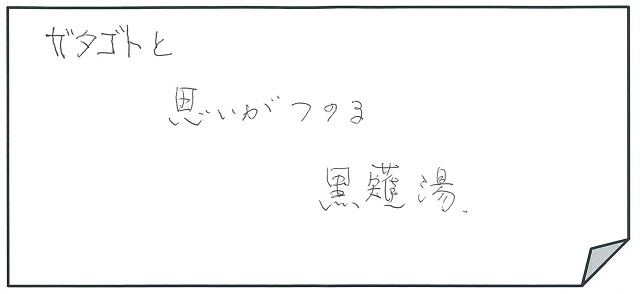 ガタゴトと
思いがつのる
黒薙湯